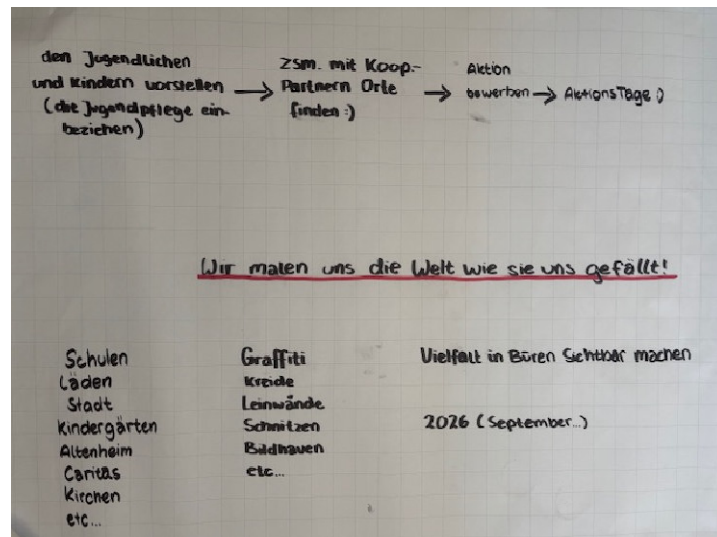 den Jugendlichen
und Kindern vorstellen
(die Jugendpflege ein-
beziehen)
→ zsm. mit Koop.-
Partnern Orte
finden :)
→ Aktion
bewerben → AktionsTage :)
Wir malen uns die Welt wie sie uns gefällt!
Schulen
Läden
Stadt
Kindergärten
Altenheim
Caritas
Kirchen
etc...
Graffiti
Kreide
Leinwände
Schnitzen
Bildhauen
etc...
Vielfalt in Büren Sichtbar machen
2026 (September...)